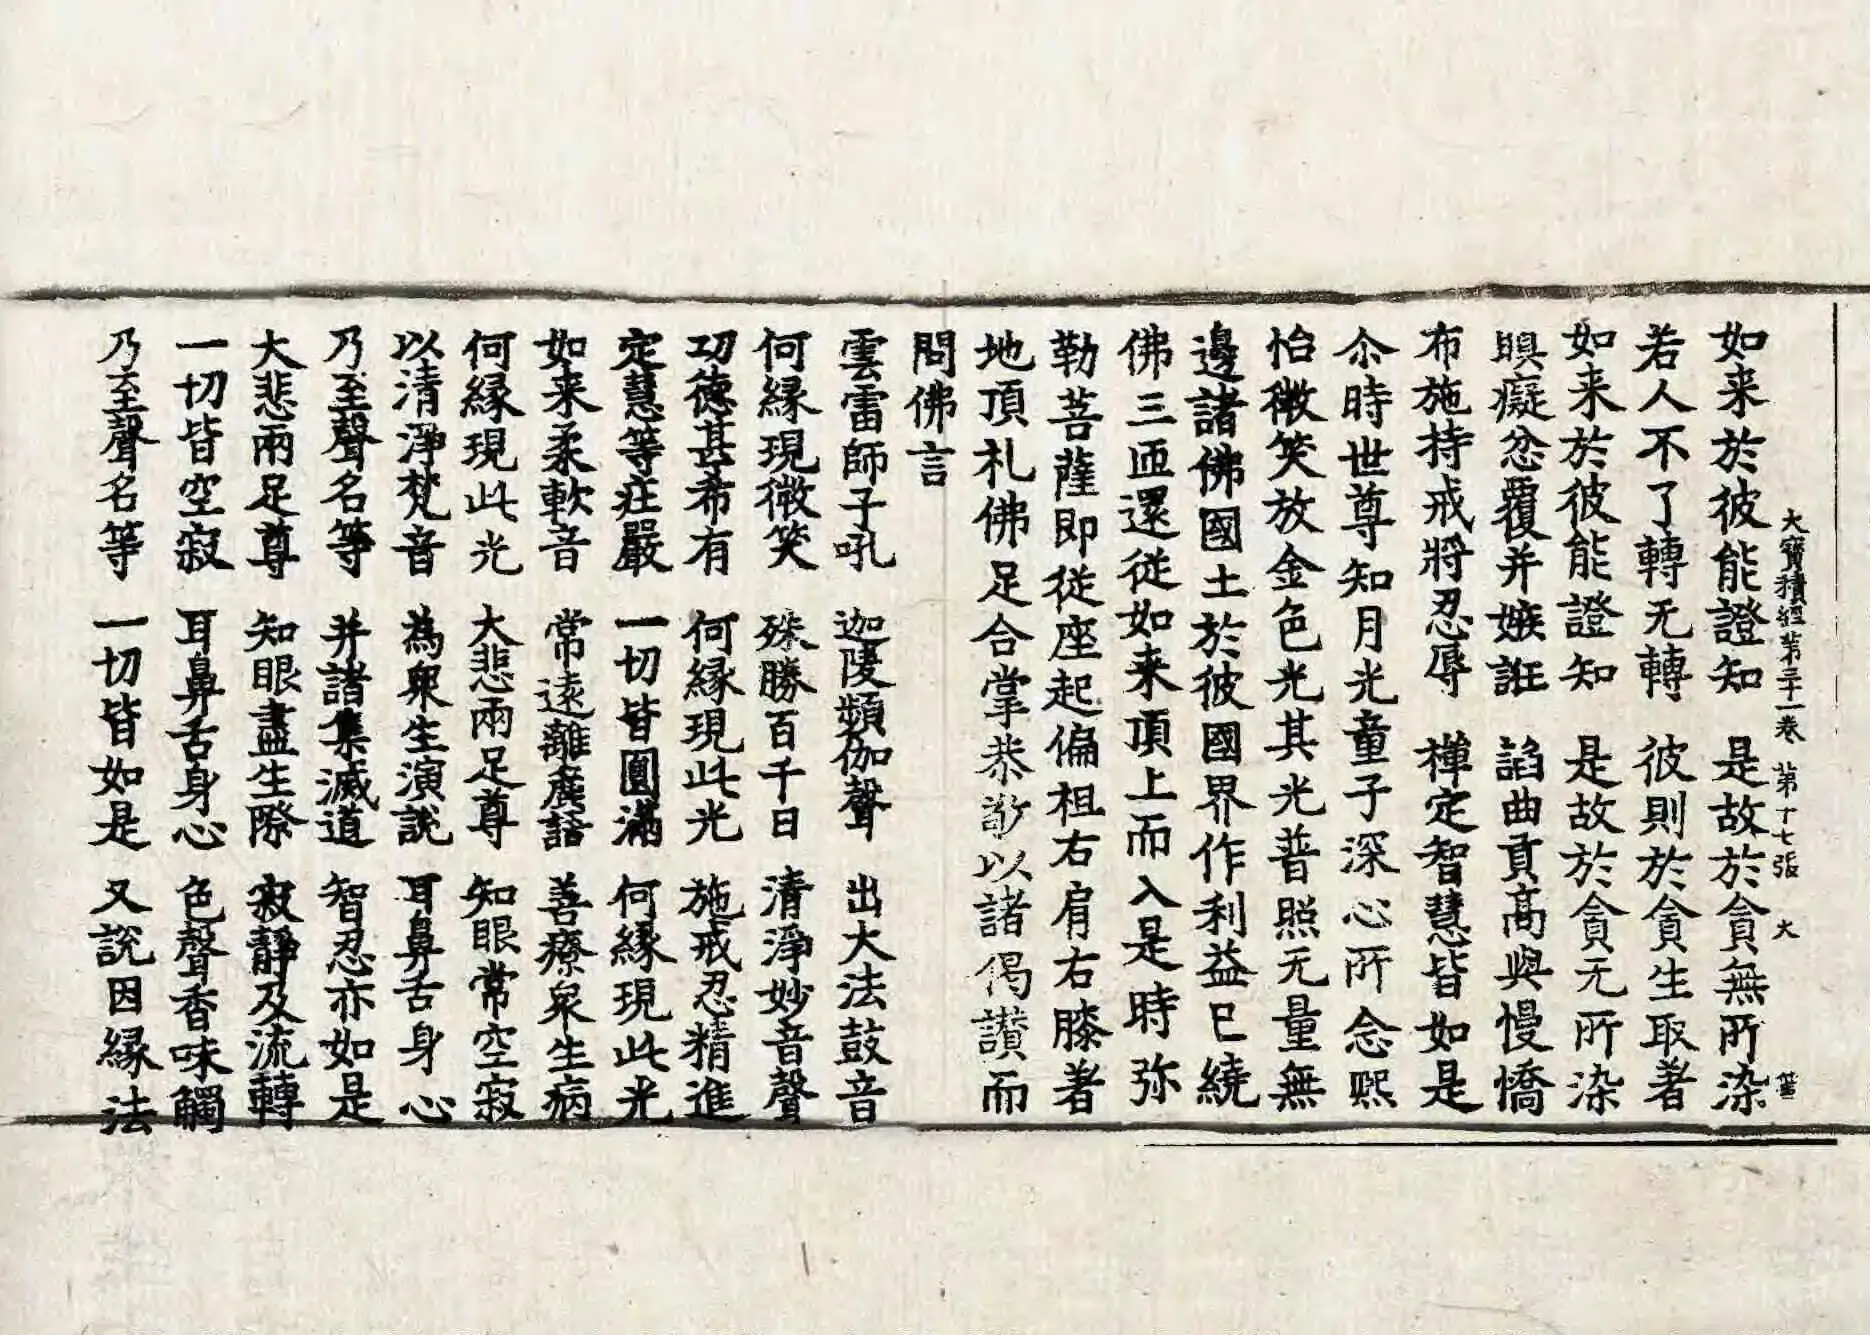 大寶積經第三十一卷 第十七張 大
如来於彼能證知 是故於貪無所染
若人不了轉无轉 彼則於貪生取著
如来於彼能證知 是故於貪无所染
瞋癡忿覆并嫉誑 諂曲貢高與慢憍
布施持戒將忍辱 禪定智慧皆如是
尒時世尊知月光童子深心所念熙
怡微笑放金色光其光普照无量無
邊諸佛國土於彼國界作利益已繞
佛三匝還從如来頂上而入是時弥
勒菩薩即從座起偏袒右肩右膝著
地頂礼佛足合掌恭敬以諸偈讃而
問佛言
雲雷師子吼 迦陵頻伽聲 出大法鼓音
何縁現微笑 殊勝百千日 清淨妙音聲
功德甚希有 何縁現此光 施戒忍精進
定慧等莊嚴 一切皆圓滿 何縁現此光
如来柔軟音 常遠離麁語 善療衆生病
何縁現此光 大悲兩足尊 知眼常空寂
以清淨梵音 為衆生演說 耳鼻舌身心
乃至聲名等 并諸集滅道 智忍亦如是
大悲兩足尊 知眼盡生際 寂靜及流轉
一切皆空寂 耳鼻舌身心 色聲香味觸
乃至聲名等 一切皆如是 又說因縁法